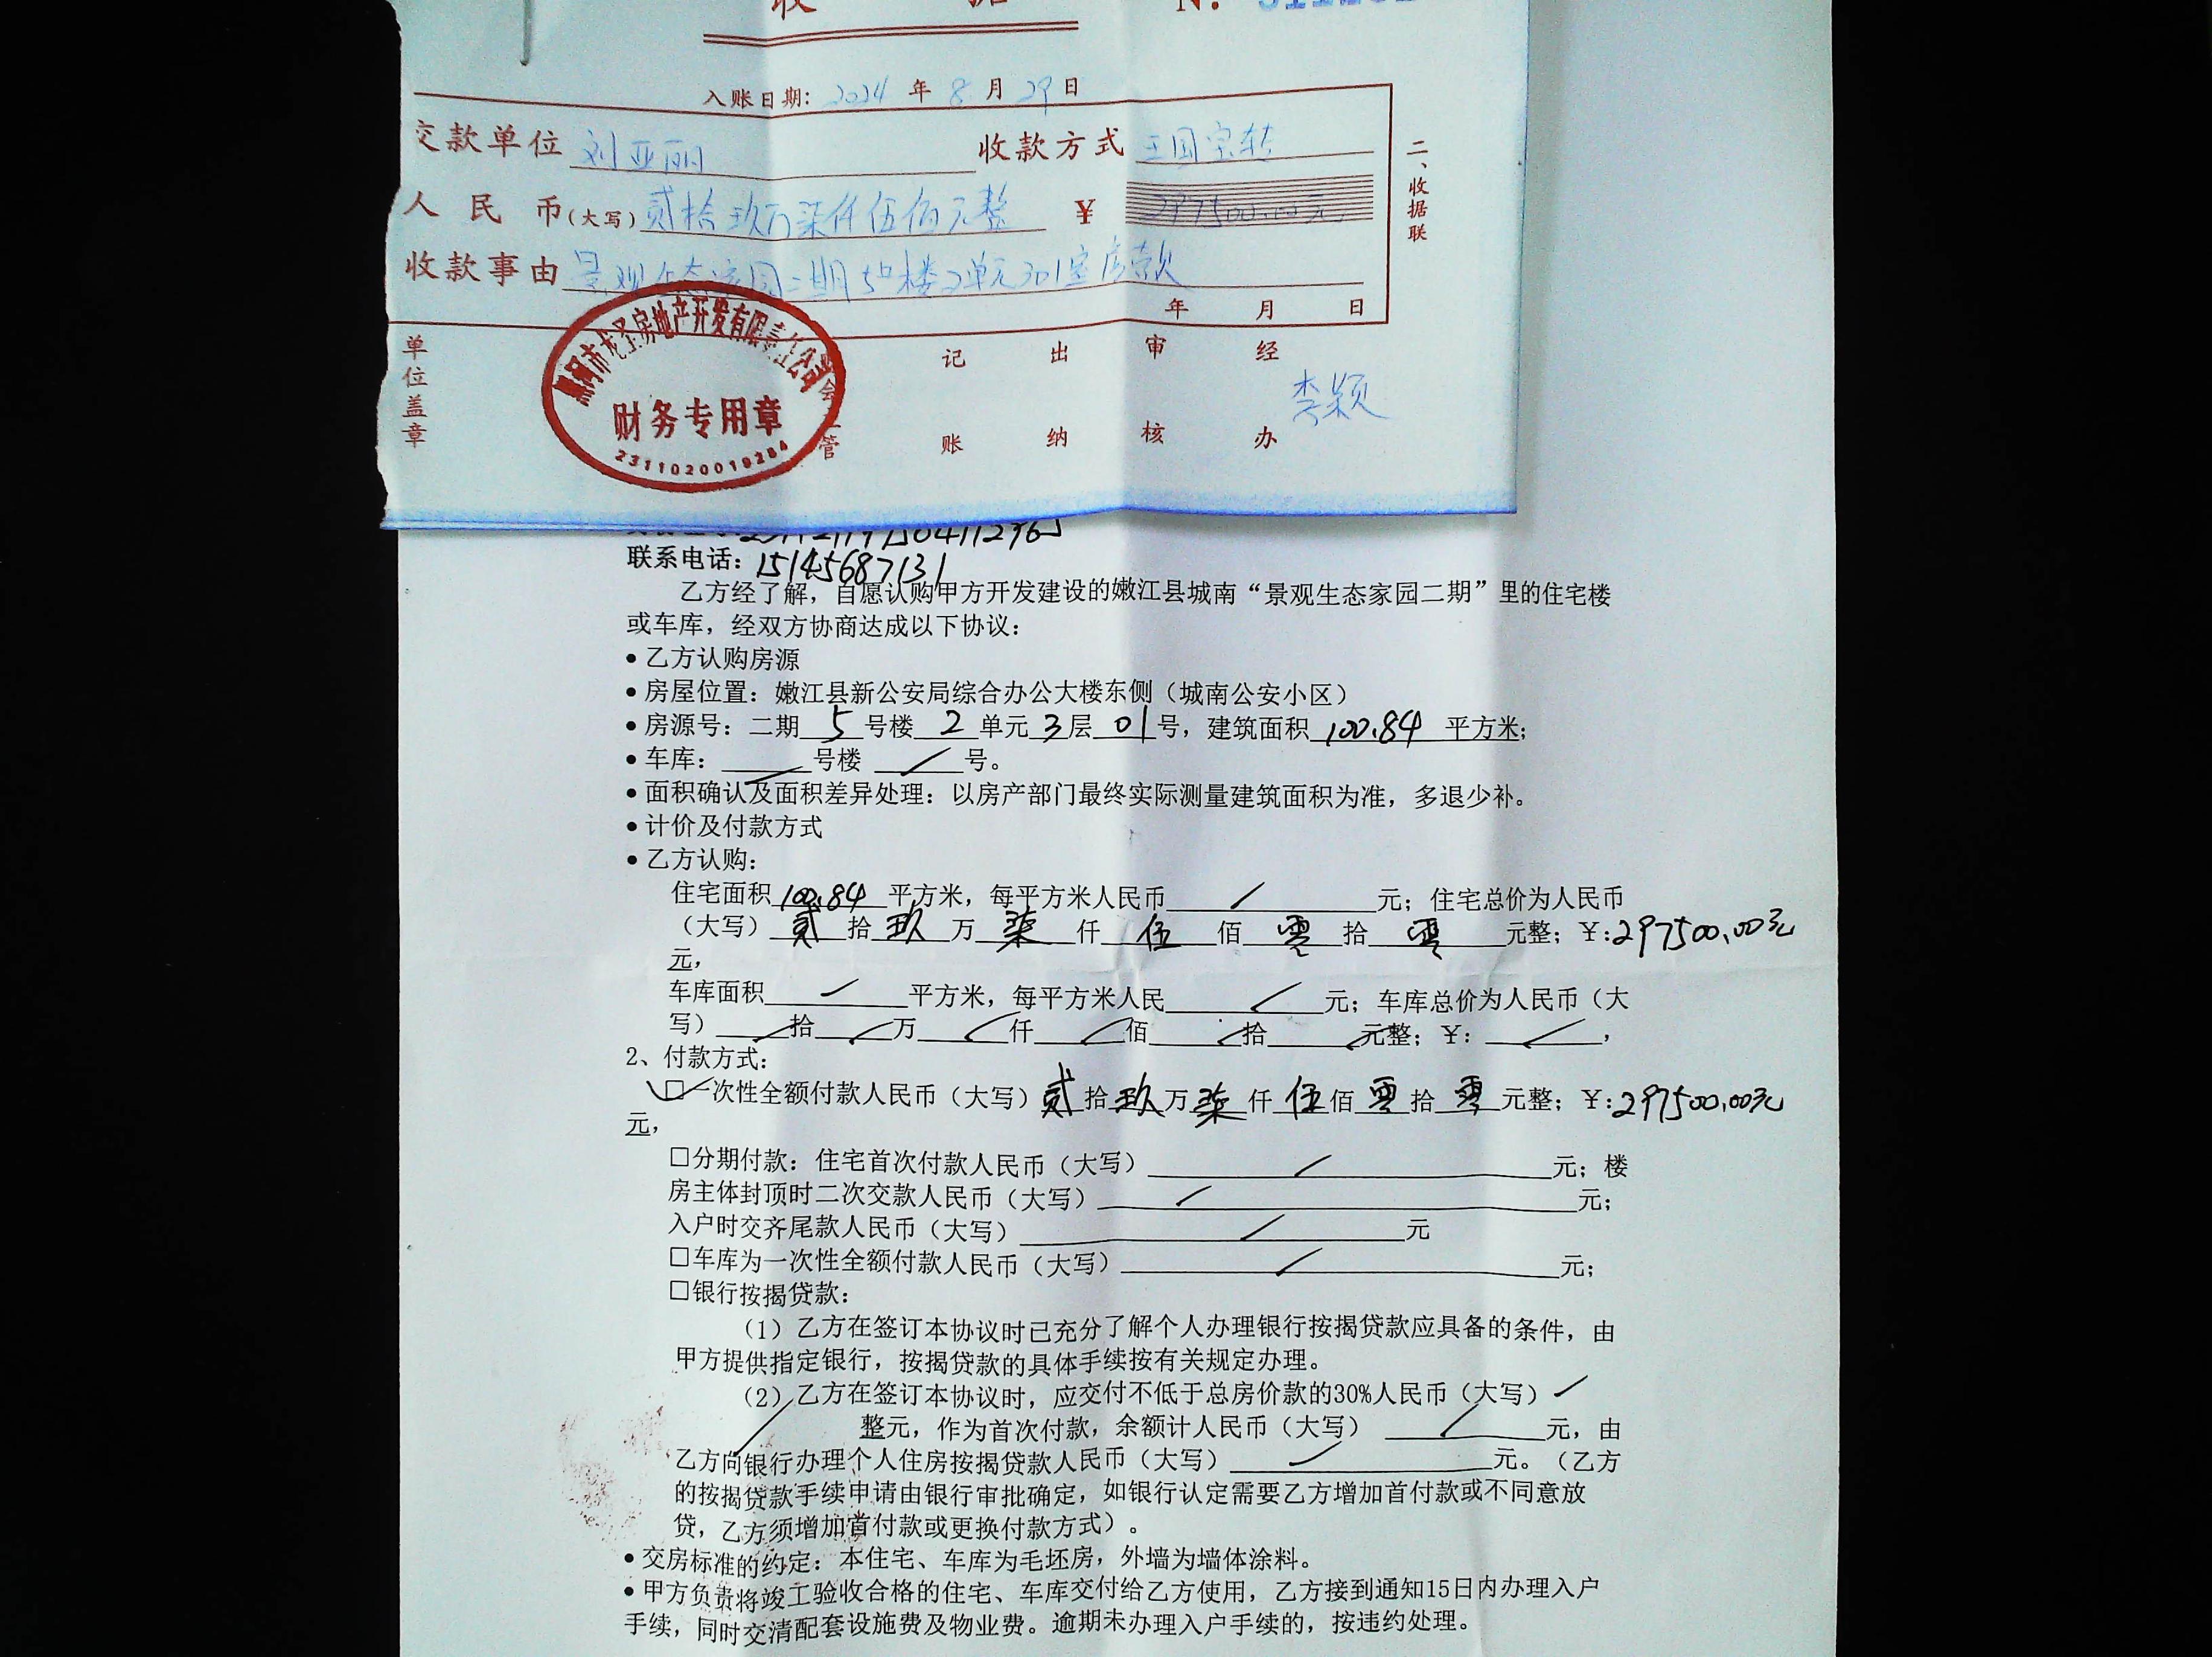 收 据
入账日期: 2024 年 8 月 29 日
交款单位 刘亚丽 收款方式 王国宝转
人民币(大写) 贰拾玖万柒仟伍佰元整 ¥ 297500.00元
收款事由 景观生态家园二期5#楼2单元301室房款
年 月 日
二、收据联
单位盖章 会 管 记账 出纳 审核 经办 李颖
黑河市龙圣房地产开发有限责任公司
财务专用章
2311020019284
联系电话：15145687131
乙方经了解，自愿认购甲方开发建设的嫩江县城南“景观生态家园二期”里的住宅楼
或车库，经双方协商达成以下协议：
• 乙方认购房源
• 房屋位置：嫩江县新公安局综合办公大楼东侧（城南公安小区）
• 房源号：二期 5 号楼 2 单元 3 层 01 号，建筑面积 100.84 平方米；
• 车库： / 号楼 / 号。
• 面积确认及面积差异处理：以房产部门最终实际测量建筑面积为准，多退少补。
• 计价及付款方式
• 乙方认购：
住宅面积 100.84 平方米，每平方米人民币 / 元；住宅总价为人民币
（大写） 贰 拾 玖 万 柒 仟 伍 佰 零 拾 零 元整；￥:297500.00元
元，
车库面积 / 平方米，每平方米人民 / 元；车库总价为人民币（大
写） / 拾 / 万 / 仟 / 佰 / 拾 / 元整；￥： / ，
2、付款方式：
☑一次性全额付款人民币（大写）贰 拾 玖 万 柒 仟 伍 佰 零 拾 零 元整；￥:297500.00元
元，
□分期付款：住宅首次付款人民币（大写） / 元；楼
房主体封顶时二次交款人民币（大写） / 元；
入户时交齐尾款人民币（大写） / 元
□车库为一次性全额付款人民币（大写） / 元；
□银行按揭贷款：
（1）乙方在签订本协议时已充分了解个人办理银行按揭贷款应具备的条件，由
甲方提供指定银行，按揭贷款的具体手续按有关规定办理。
（2）乙方在签订本协议时，应交付不低于总房价款的30%人民币（大写） /
整元，作为首次付款，余额计人民币（大写） / 元，由
乙方向银行办理个人住房按揭贷款人民币（大写） / 元。（乙方
的按揭贷款手续申请由银行审批确定，如银行认定需要乙方增加首付款或不同意放
贷，乙方须增加首付款或更换付款方式）。
• 交房标准的约定：本住宅、车库为毛坯房，外墙为墙体涂料。
• 甲方负责将竣工验收合格的住宅、车库交付给乙方使用，乙方接到通知15日内办理入户
手续，同时交清配套设施费及物业费。逾期未办理入户手续的，按违约处理。